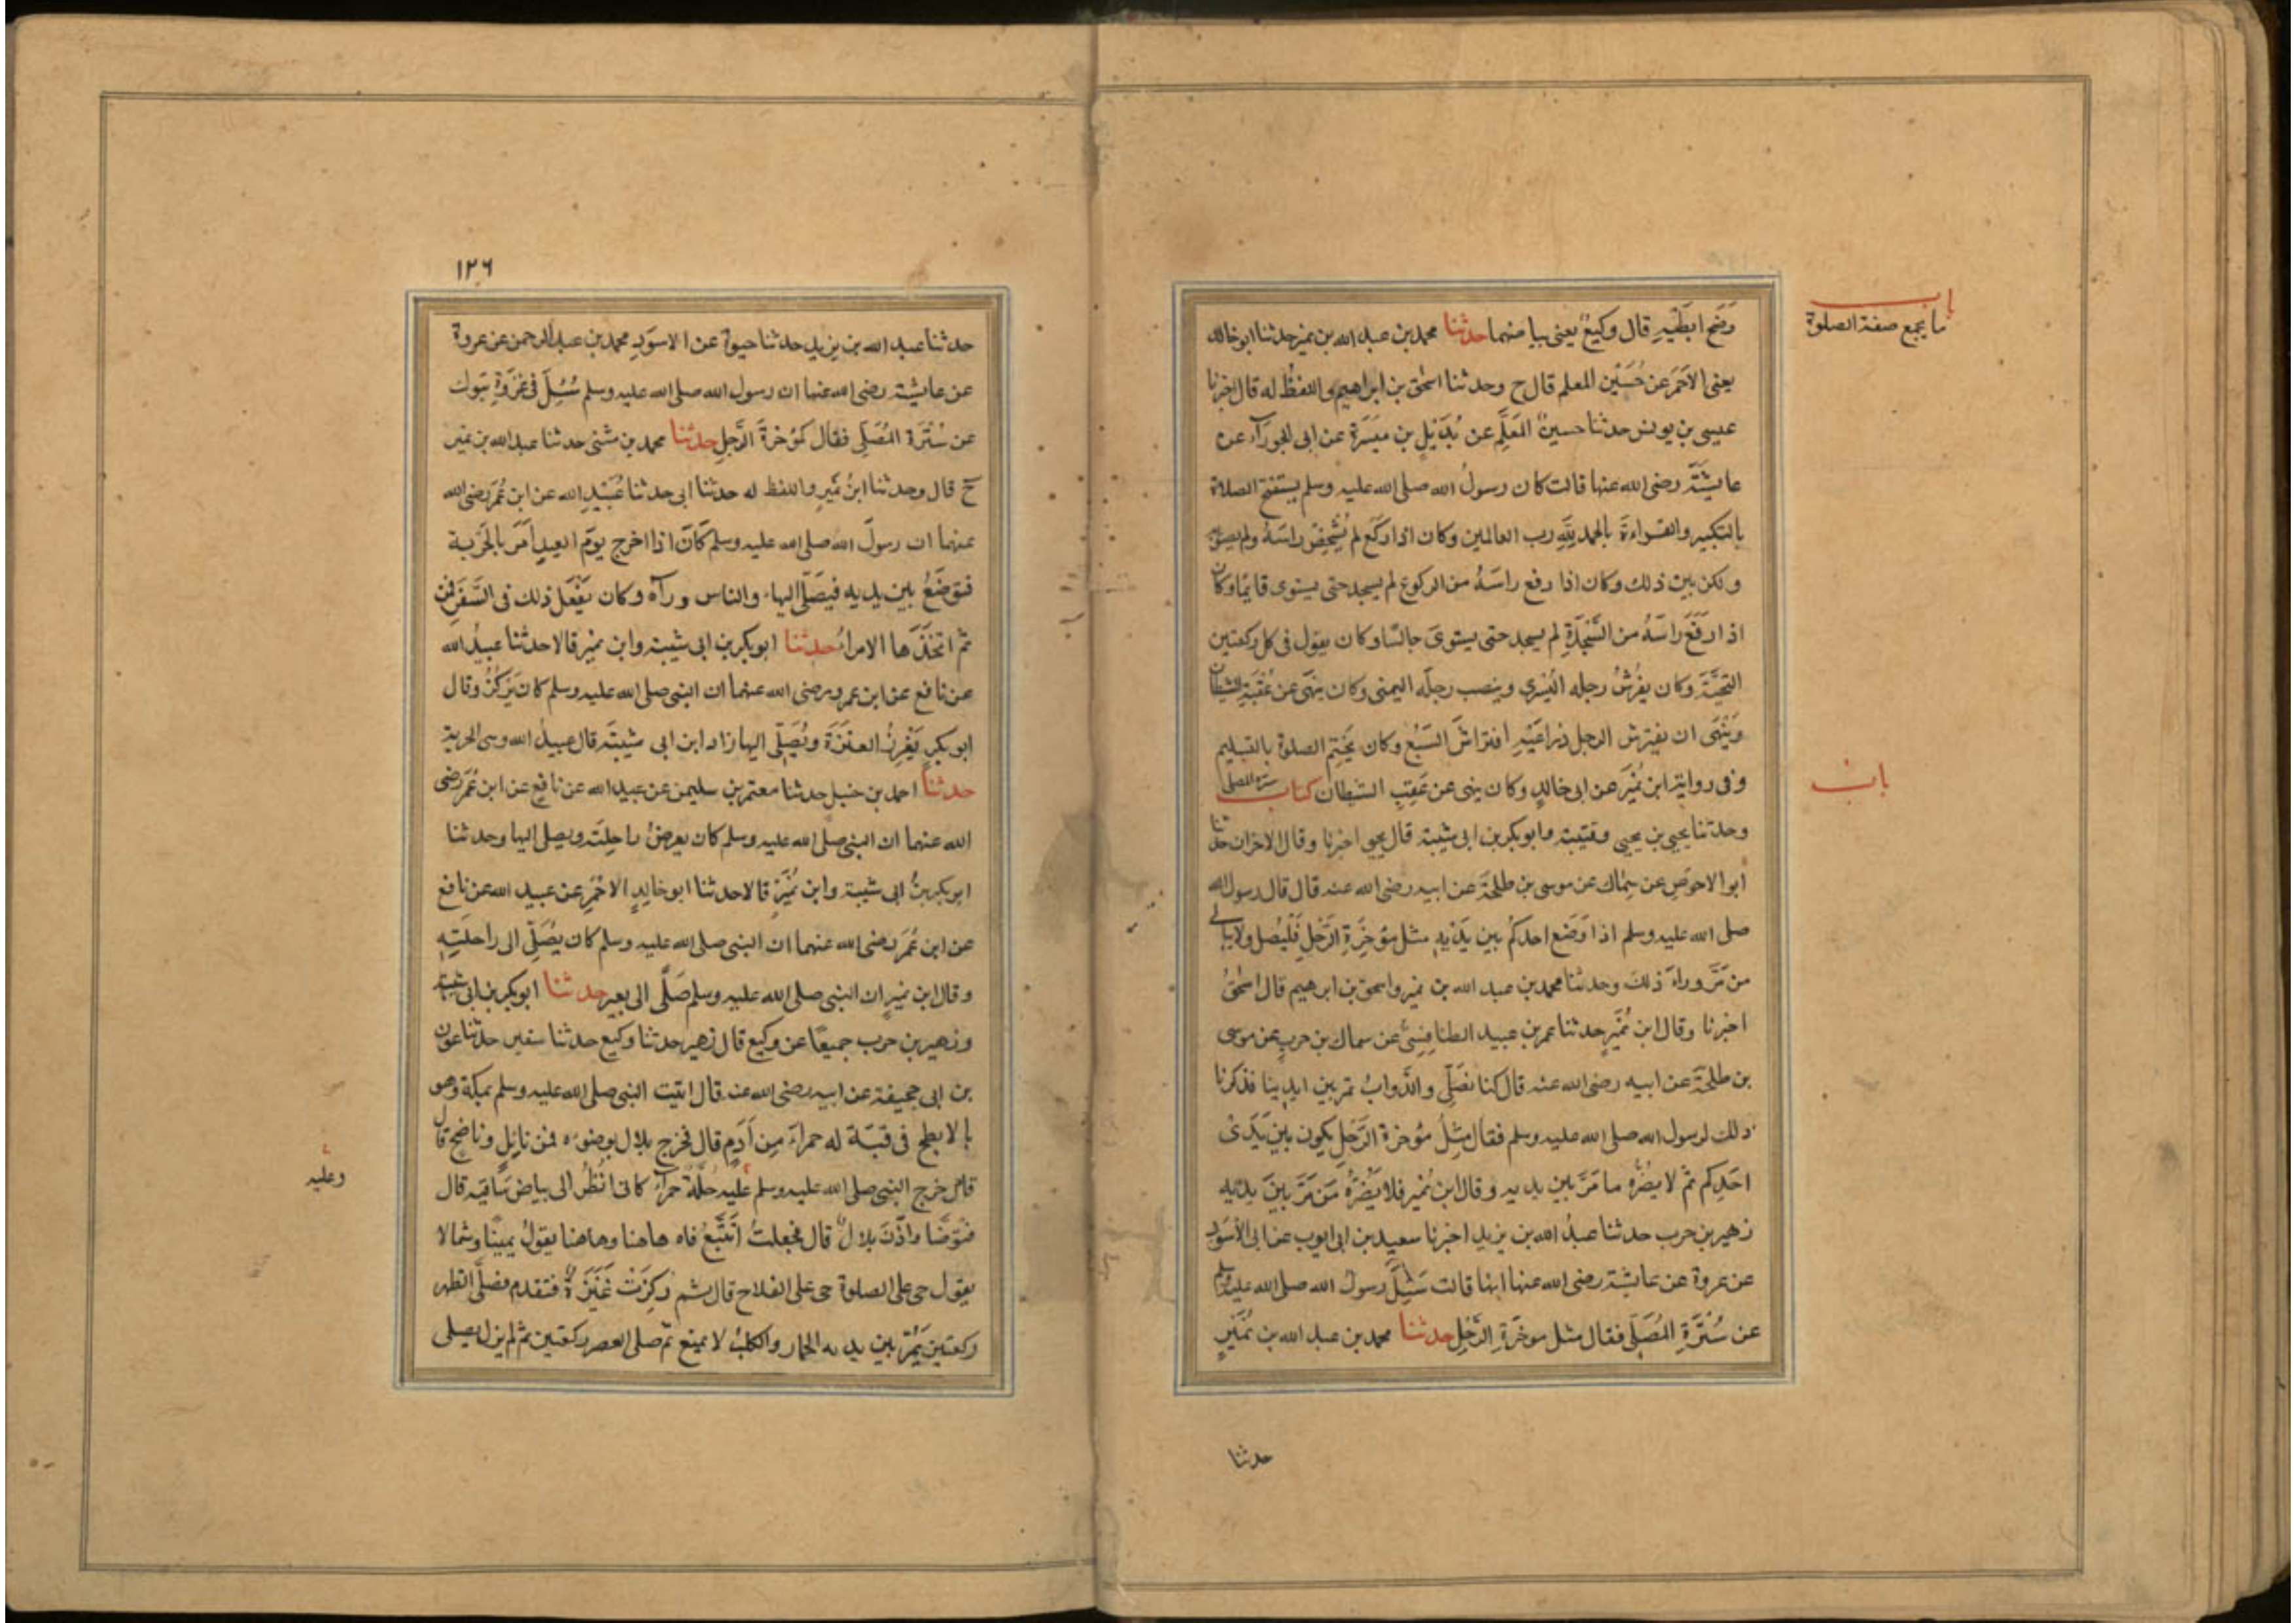 باب
ما يجمع صفة الصلوة
وضح ابطيه قال وكيع يعنى بياضهما حدثنا محمد بن عبد الله بن نمير حدثنا ابو خالد
يعنى الاحمر عن حُسَيْن المعلم قال ح وحدثنا اسحق بن ابراهيم واللفظ له قال اخبرنا
عيسى بن يونس حدثنا حسينٌ المُعَلِّم عن بُدَيْلِ بن ميسرة عن ابى الجوزآء عن
عايشة رضى الله عنها قالت كان رسولُ الله صلى الله عليه وسلم يستفتح الصلاة
بالتكبير والقراءة بالحمد لله رب العالمين وكان اذا ركع لم يُشْخِصْ راسَهُ ولم يصوبه
ولكن بين ذلك وكان اذا رفع راسَهُ من الركوع لم يسجد حتى يستوى قايما وكان
اذا رفَعَ راسَهُ من السَّجْدَةِ لم يسجد حتى يستوىَ جالسًا وكان يقول فى كل ركعتين
التحيَّةَ وكان يفرُشُ رجله اليُسْرى وينصب رجلَه اليمنى وكان ينهَى عن عُقْبَةِ الشيطان
وَيَنْهَى ان يفترش الرجل ذراعَيْهِ افتراشَ السَبُع وكان يَختِم الصلوة بالتسليم
وفى رواية ابن نُمَيْر عن ابى خالدٍ وكان ينهى عن عَقِبِ الشيطان كتاب سترة المصلى
باب
وحدثنا يحيى بن يحيى وقتيبة وابو بكر بن ابى شيبة قال يحيى اخبرنا وقال الاخران حدثنا
ابو الاحوَصِ عن سِماك عن موسى بن طلحة عن ابيه رضى الله عنه قال قال رسول الله
صلى الله عليه وسلم اذا وَضَع احدكُم بين يدَيْهِ مثل مؤخِرَةِ الرَّحْلِ فَلْيُصل ولا يبالى
من مَرَّ وراءَ ذلكَ وحدثنا محمد بن عبد الله بن نمير واسحق بن ابرهيم قال اسحٰقُ
اخبرنا وقال ابن نُمَيْرٍ حدثنا عمر بن عبيد الطنافِسِىُّ عن سماك بن حربٍ عن موسى
بن طلحَةَ عن ابيه رضى الله عنه قال كنا نصَلِّى والدَّوابُ تمر بين ايدينا فذكرنا
ذلك لرسول الله صلى الله عليه وسلم فقال مِثْلُ مُؤخرة الرَّحْلِ يكون بين يَدَىْ
احَدِكم ثم لا يضُرُّه ما مَرَّ بين يديه وقال ابن نُمَيْر فلا يَضُرُّه مَن مَرَّ بينَ يديه
زهير بن حرب حدثنا عبدُ الله بن يزيد اخبرنا سعيد بن ابى ايوب عن ابى الاَسْوَد
عن عروة عن عايشة رضى الله عنها انها قالت سُئِلَ رسول الله صلى الله عليه وسلم
عن سُتْرَةِ المُصَلِّى فقال مثل موخَّرَةِ الرَّحْلِ حدثنا محمد بن عبد الله بن نُمَيْرٍ
حدثنا
١٢٦
حدثنا عبد الله بن يزيد حدثنا حيوة عن الاسوَدِ محمد بن عبد الرحمن عن عروة
عن عايشة رضى الله عنها ان رسول الله صلى الله عليه وسلم سُئِلَ فى غَزْوَةِ تبوك
عن سُتْرَة المُصَلِّى فقال كمُؤخرة الرَّحِلِ حدثنا محمد بن مثنى حدثنا عبد الله بن نمير
ح قال وحدثنا ابنُ نُمَيرٍ واللفظ له حدثنا ابى حدثنا عُبَيْدِ الله عن ابن عُمَر رضى الله
عنهما ان رسولَ الله صلى الله عليه وسلم كَانَ اذا اخرج يومَ العيدِ اَمَرَ بالحَرْبة
فتوضَعُ بين يديه فيصَلّى اليها والناس ورآه وكان يَفْعَل ذلك فى السَفَرِ فمن
ثم اتَّخَذَها الامراءُ حدثنا ابو بكر بن ابى شيبة وابن نمير قالا حدثنا عبيدُ الله
عن نافع عن ابن عمر رضى الله عنهما ان النبى صلى الله عليه وسلم كان يَرْكُزُ وقال
ابو بكرٍ يَغْرِزُ العنَزَةَ ويُصَلّى اليها زاد ابن ابى شيبة قال عبيدُ الله وهى الحربة
حدثنا احمد بن حنبل حدثنا معتمر بن سليمن عن عبيد الله عن نافع عن ابن عُمَر رضى
الله عنهما ان النبى صلى الله عليه وسلم كان يعرضُ راحِلَته ويصلى اليها وحدثنا
ابو بكر بنُ ابى شيبة وابن نُمَيْرٍ قالا حدثنا ابو خالِدٍ الاحْمَرِ عن عبيد الله عن نافع
عن ابن عُمَر رضى الله عنهما ان النبى صلى الله عليه وسلم كان يُصَلِّى الى راحلَتِهِ
وقال ابن نميرٍ ان النبى صلى الله عليه وسلم صَلَّى الى بعير حدثنا ابو بكر بن ابى شيبة
وزهير بن حرب جميعًا عن وكيع قال زهير حدثنا وكيع حدثنا سفين حدثنا عون
بن ابى جحيفة عن ابيه رضى الله عنه قال اتيت النبى صلى الله عليه وسلم بمكة وهو
بالابطح فى قبّة له حمراءَ مِن اَدَمٍ قال فخرج بلال بوضوءه فمن نايلٍ وناضحٍ قال
قال خرج النبى صلى الله عليه وسلم عليه حُلّةٌ حمرآءُ كانى انْظُرُ الى بياض سَاقَيْهِ قال
وعليه
فتوضَّا واَذَّنَ بلالٌ قال فجعلتُ اَتتَبَّعُ فاه هاهنا وهاهنا يقولُ يمينًا وشمالا
يقول حى على الصلوة حى على الفلاح قال ثم رُكِزَتْ عَنَزَةٌ فتقدم فصَلَّى الظهر
ركعتين يَمُرّ بين يديه الحمار والكلبُ لا يمنع ثم صلى العصر ركعتين ثم لم يزل يصلى